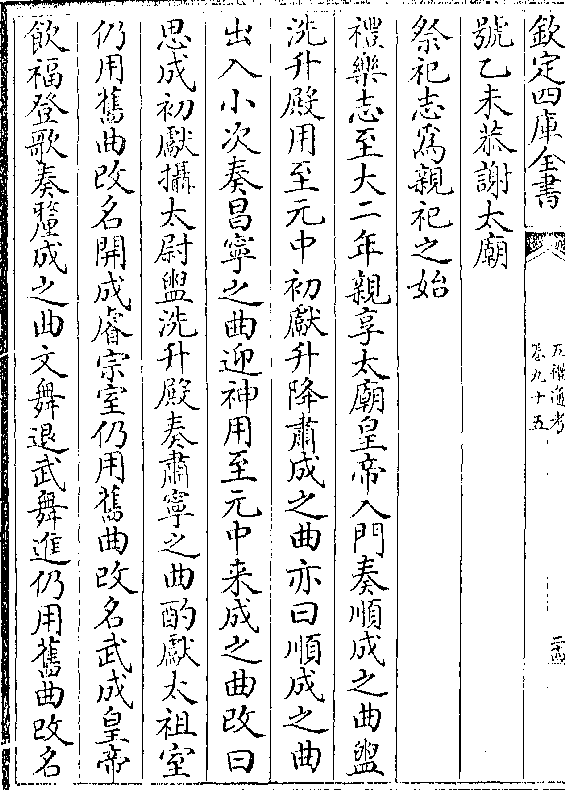 欽定四庫全書
五禮通考
卷九十五
二十四
號乙未恭謝太廟
祭祀志為親祀之始
禮樂志至大二年親享太廟皇帝入門奏順成之曲盥
洗升殿用至元中初獻升降肅成之曲亦曰順成之曲
出入小次奏昌寧之曲迎神用至元中来成之曲改曰
思成初獻攝太尉盥洗升殿奏肅寧之曲酌獻太祖室
仍用舊曲改名開成睿宗室仍用舊曲改名武成皇帝
飲福登歌奏釐成之曲文舞退武舞進仍用舊曲改名